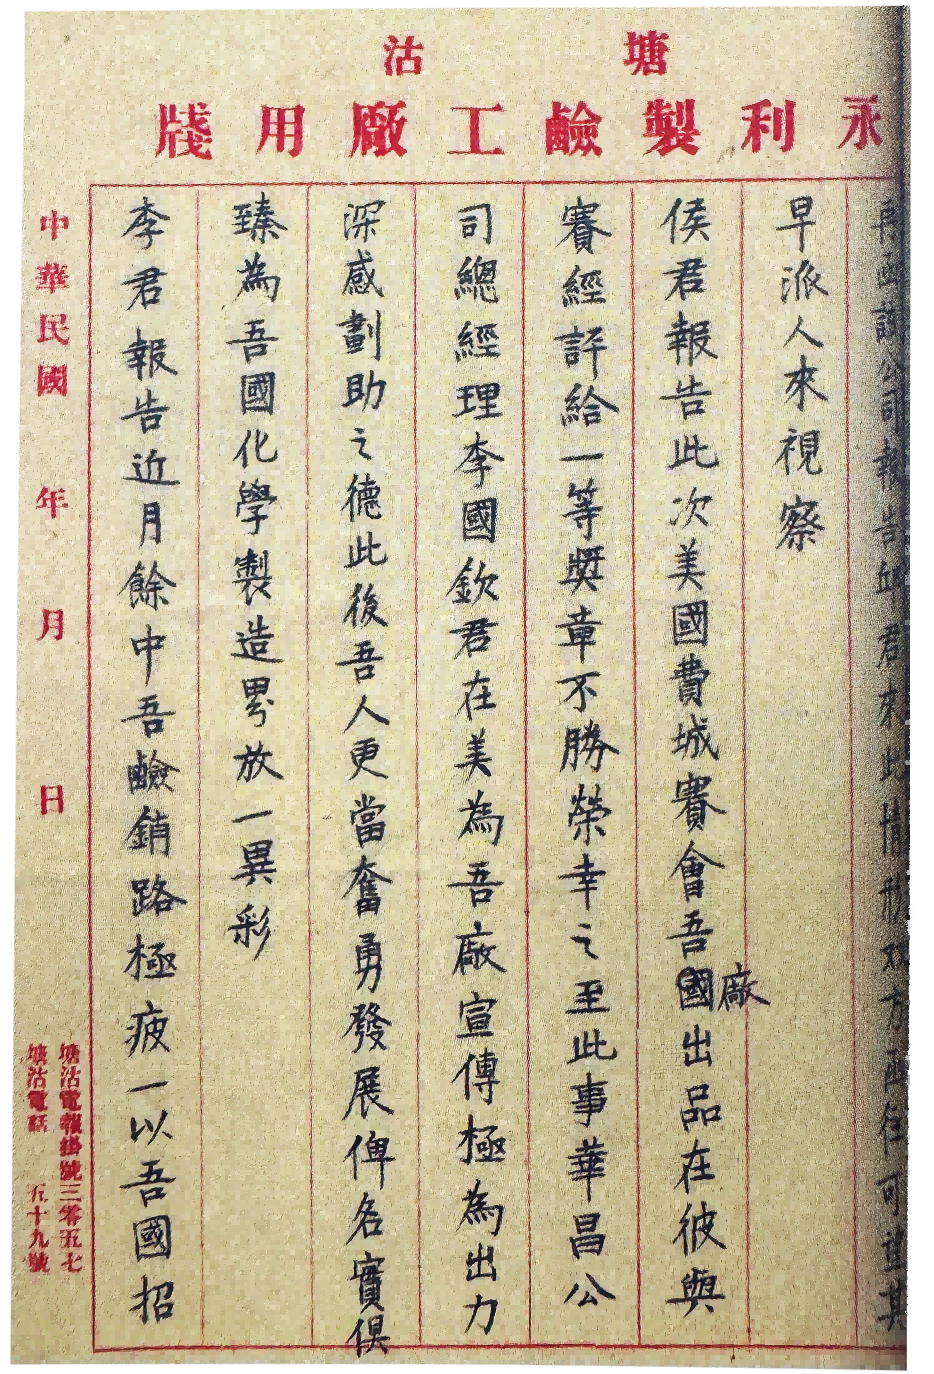 塘沽
永利製鹼工廠用牋
再函該公司報告邱君來此情形双方函件可望其
早派人來視察
侯君報告此次美國費城賽會吾國廠出品在彼與
賽經評給一等獎章不勝榮幸之至此事華昌公
司總經理李國欽君在美為吾廠宣傳極為出力
深感劃助之德此後吾人更當奮勇發展俾名實俱
臻為吾國化學製造界放一異彩
李君報告近月餘中吾鹼銷路極疲一以吾國招
中華民國 年 月 日
塘沽電報掛號三零五七
塘沽電話 五十九號